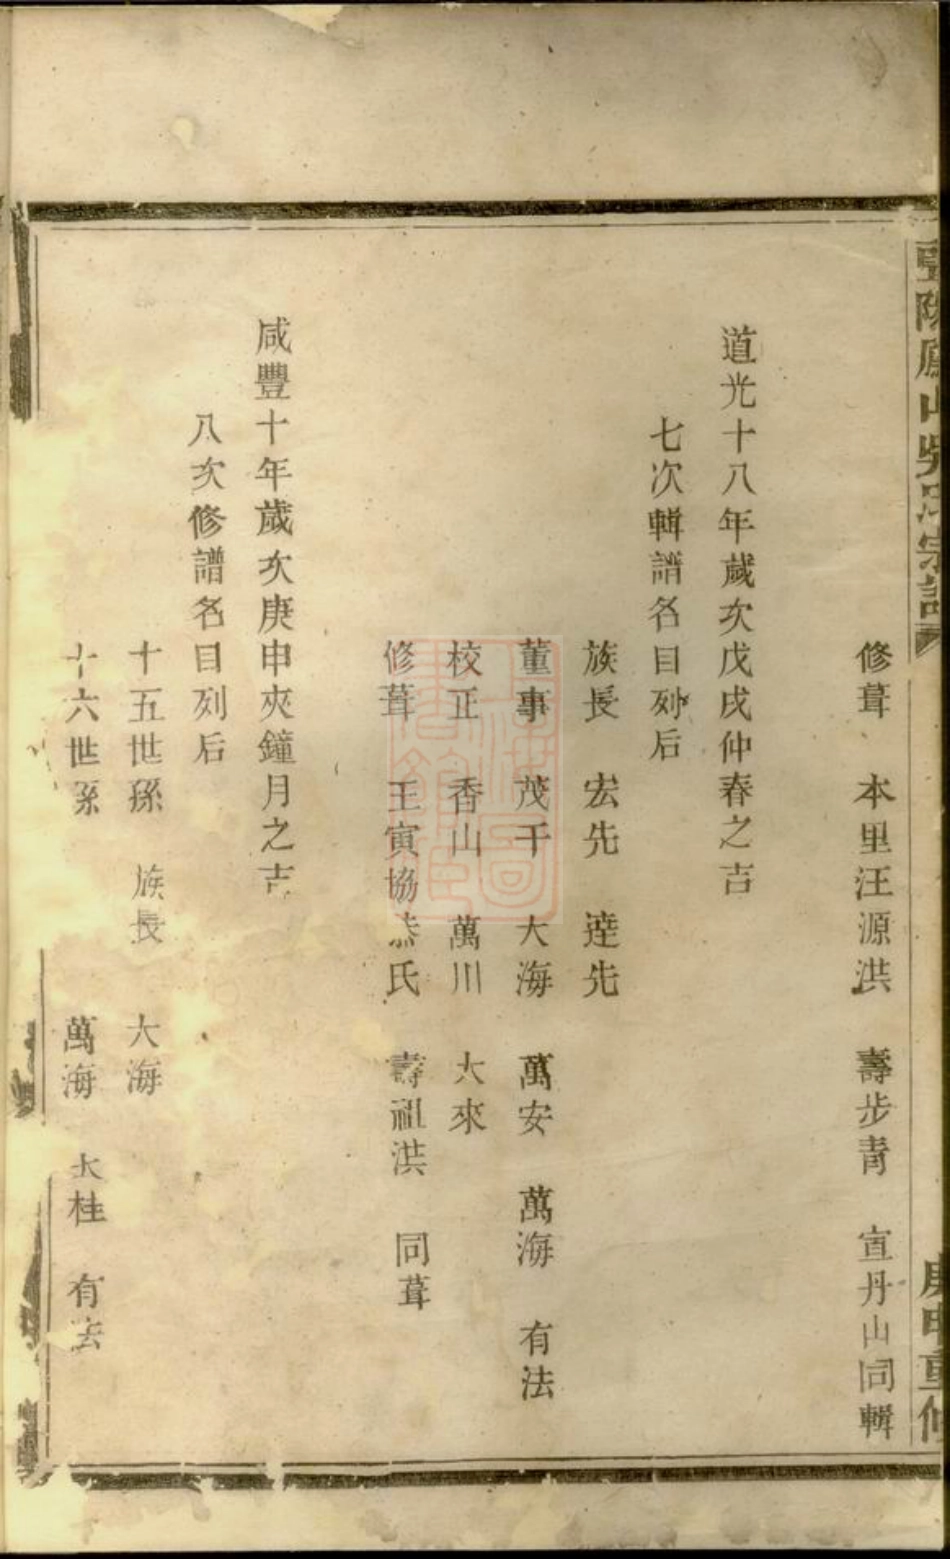 陽山吳氏宗譜
庚申重修
修葺 本里汪源洪 壽步青 宣丹山同輯
道光十八年歲次戊戌仲春之吉
七次輯譜名目列后
族長 宏先 達先
董事 茂千 大海 萬安 萬海 有法
校正 香山 萬川 大來
修葺 王寅協恭氏 壽祖洪 同葺
咸豐十年歲次庚申夾鐘月之吉
八次修譜名目列后
十五世孫 族長 大海
十六世孫 萬海 大桂 有法